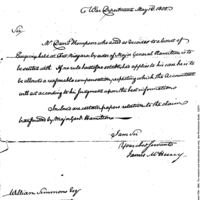 War Department May 16 1800.
Sir
Mr David Thompson who acted as
Court of
Enquiry held at Fort Niagara by order of Major General Hamilton is to
be settled with. If no rule heretofore established applies to his case he is to
be allowed a reasonable compensation, respecting which the accountant
will act according to his judgment upon the best information
Inclosed are certain papers relation to the claim
transferred by Major Genl Hamilton
I am Sir
Your obed servant
James McHenry
William Simmons Esq